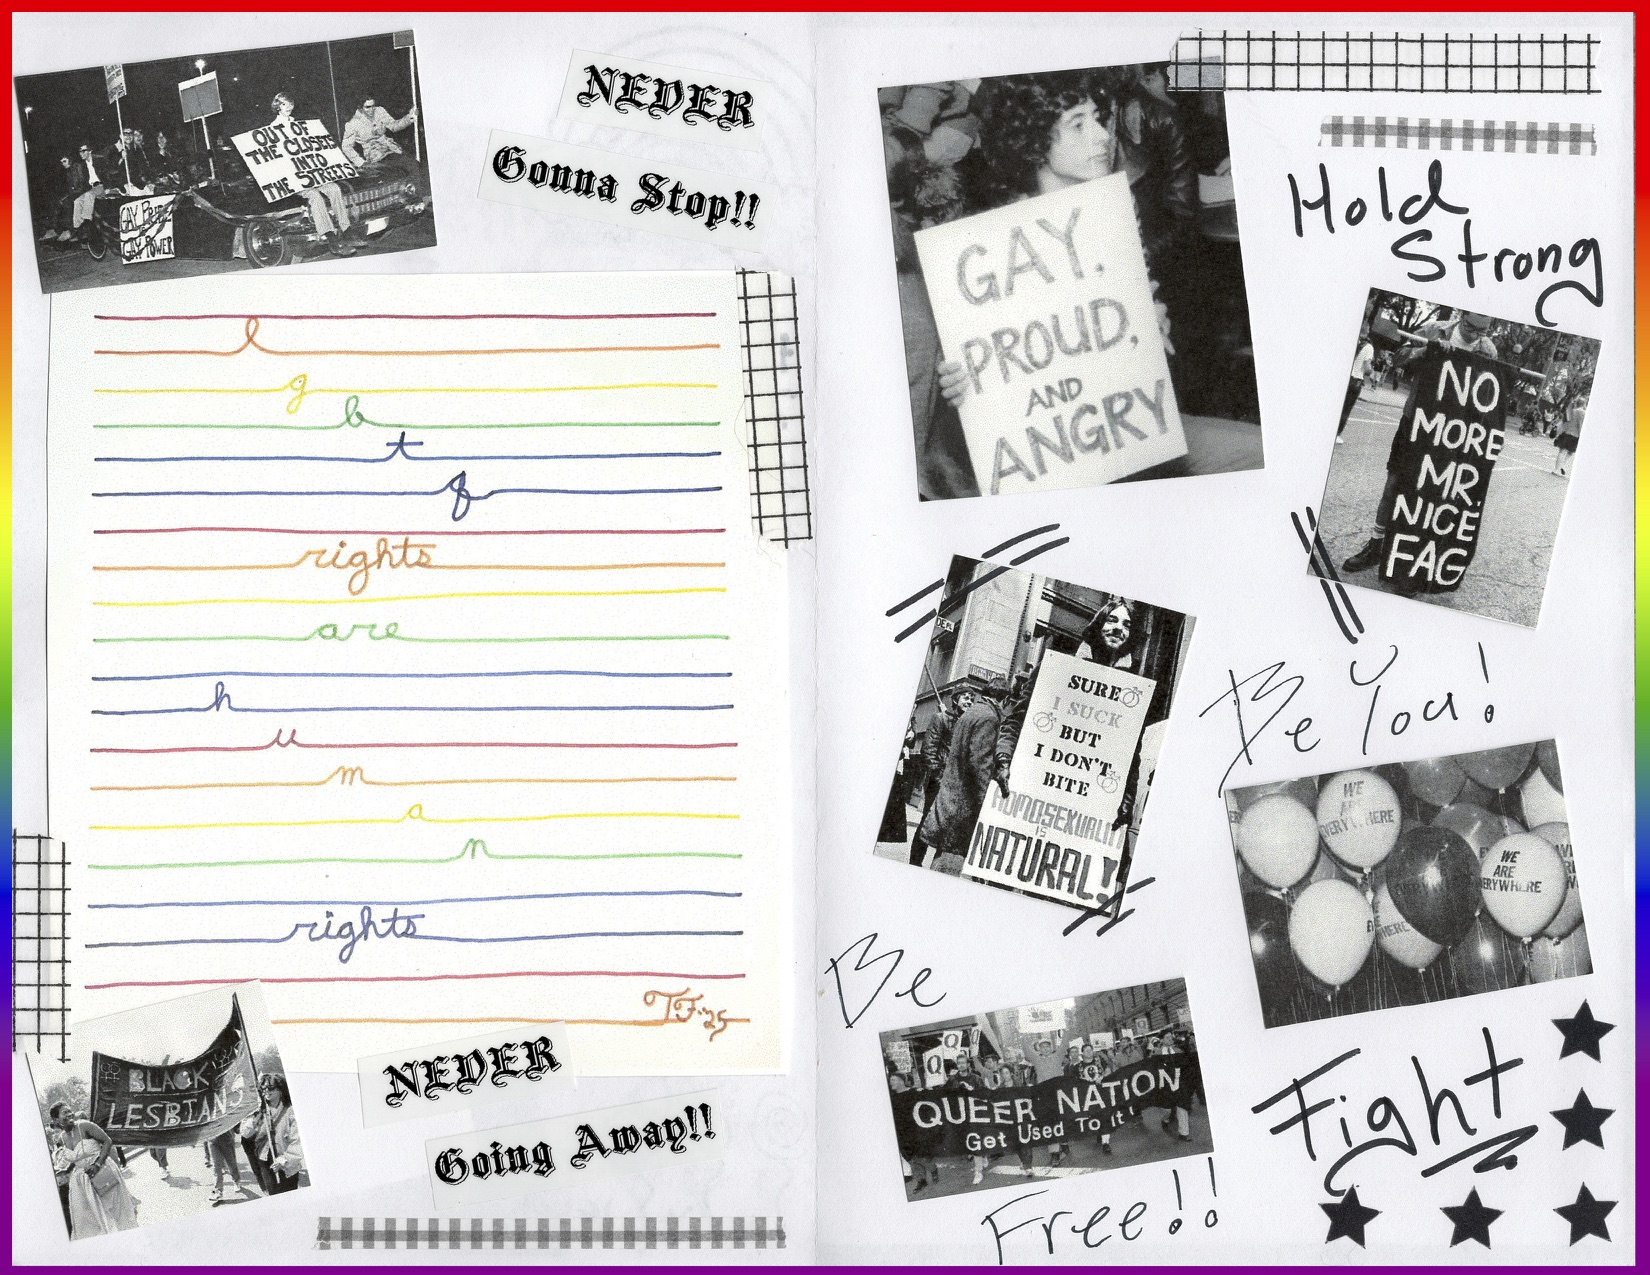 OUT OF
THE CLOSETS
INTO
THE STREETS
GAY PRIDE
GAY POWER
NEDER
Gonna Stop!!
l
g
b
t
q
rights
are
h
u
m
a
n
rights
TF·25
BLACK
LESBIANS
NEDER
Going Away!!
GAY.
PROUD,
AND
ANGRY
Hold
Strong
NO
MORE
MR.
NICE
FAG
SURE
I SUCK
BUT
I DON'T
BITE
HOMOSEXUALITY
IS
NATURAL!
Be You!
WE
ARE
EVERYWHERE
WE
ARE
EVERYWHERE
Be
Q
Q
QUEER NATION
Get Used To it!
Free!!
Fight